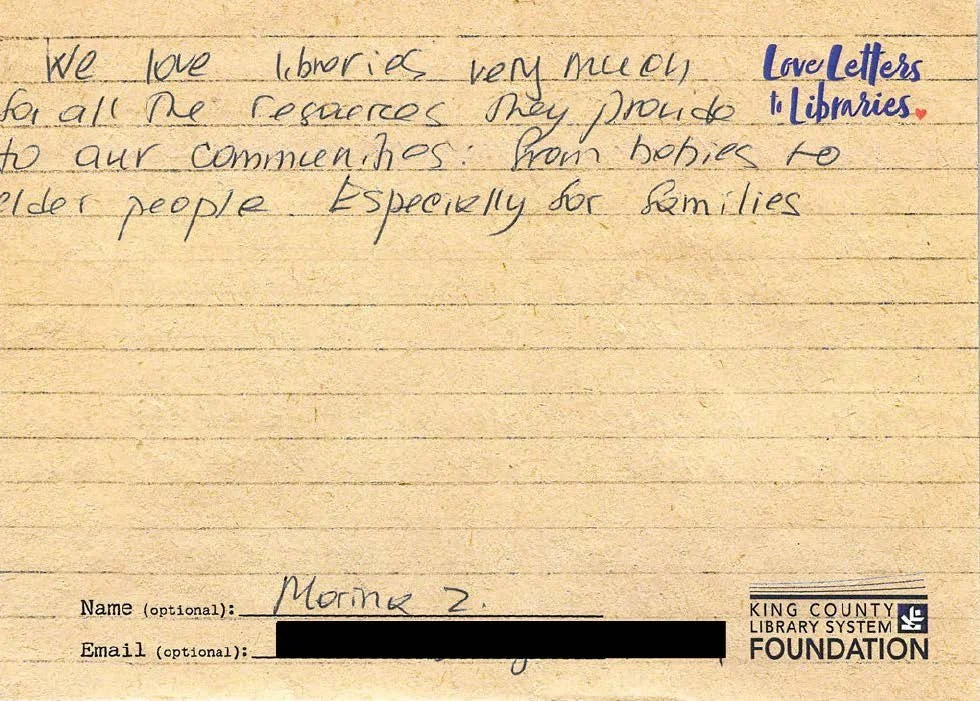 We love libraries very much
for all the resources they provide
to our communities: from babies to
elder people. Especially for families
Love Letters
to Libraries.
Name (optional): Marina Z.
Email (optional):
KING COUNTY
LIBRARY SYSTEM
FOUNDATION